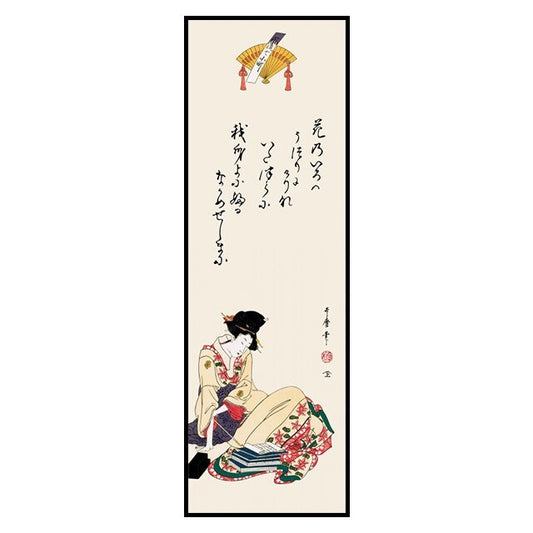 花乃いろハ
うつりに
けりな
いたつらに
我身よにふる
なかめせしまに
哥麿筆